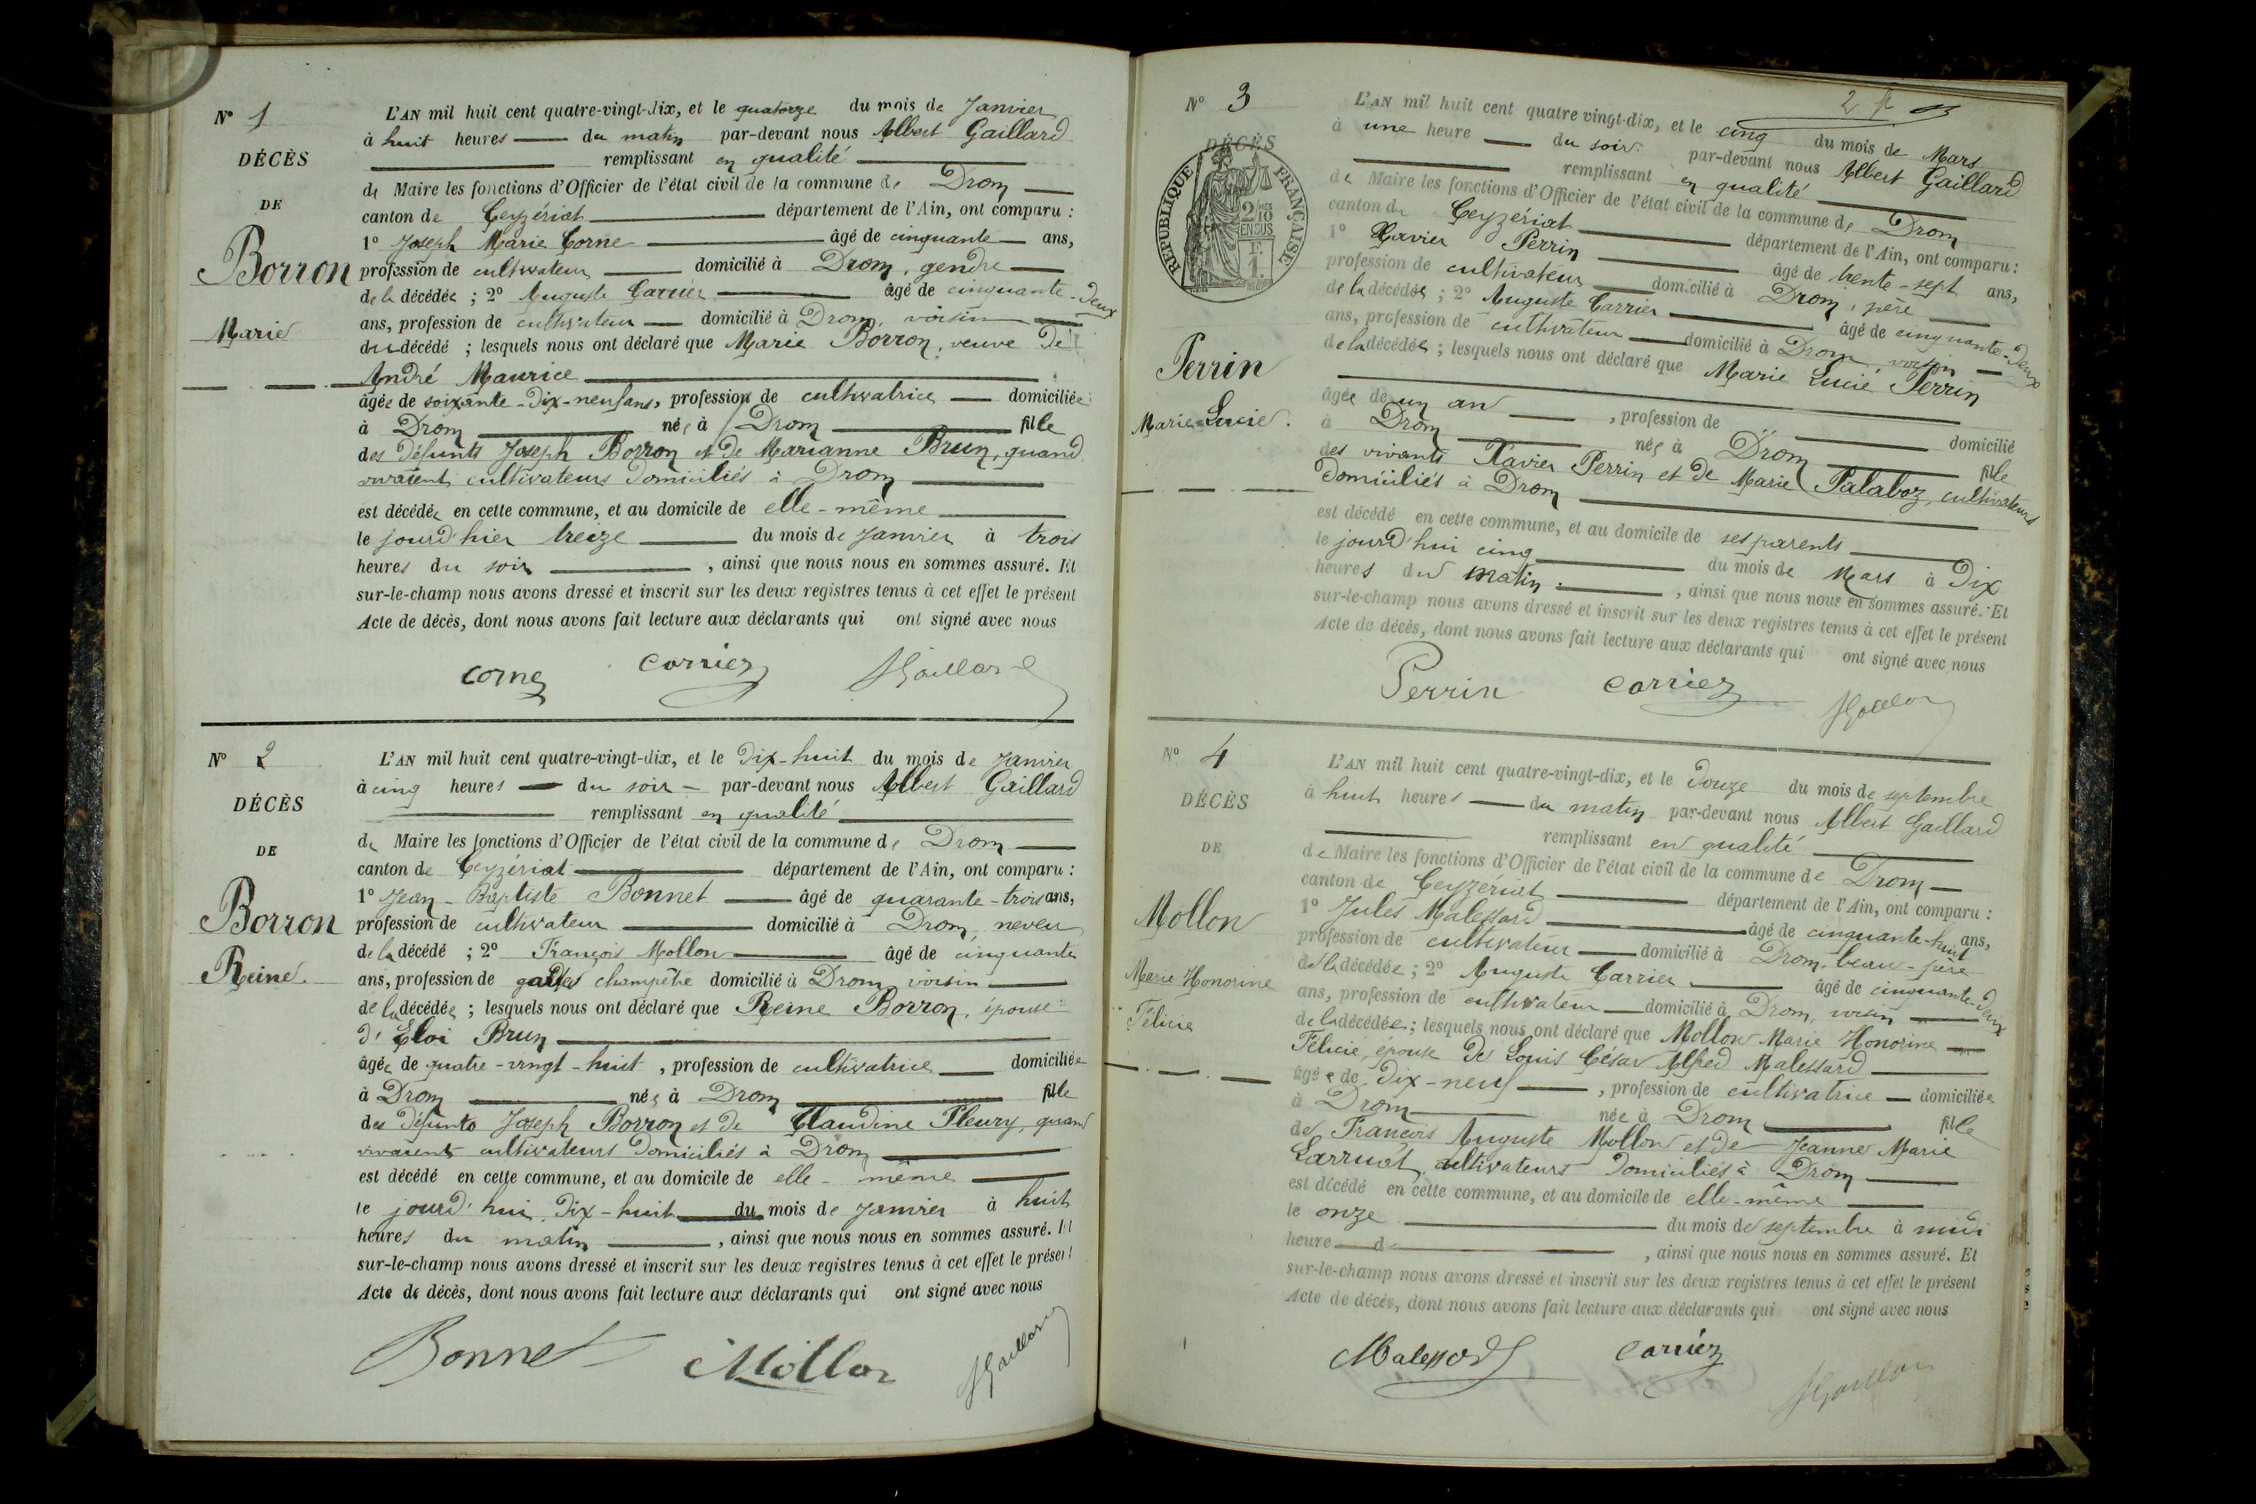 N° 1
DÉCÈS
DE
Borron
Marie
L'AN mil huit cent quatre-vingt-dix, et le quatorze du mois de Janvier
à huit heures du matin par-devant nous Albert Gaillard
remplissant en qualité
de Maire les fonctions d'Officier de l'état civil de la commune de Drom
canton de Ceyzériat département de l'Ain, ont comparu :
1° Joseph Marie Corne âgé de cinquante ans,
profession de cultivateur domicilié à Drom, gendre
de la décédée ; 2° Auguste Carrier âgé de cinquante-deux
ans, profession de cultivateur domicilié à Drom, voisin
du décédé ; lesquels nous ont déclaré que Marie Borron, veuve de
André Maurice
âgée de soixante-dix-neuf ans, profession de cultivatrice domiciliée
à Drom née à Drom fille
des défunts Joseph Borron et de Marianne Brun, quand
vivaient cultivateurs domiciliés à Drom
est décédée en cette commune, et au domicile de elle-même
le jourd'hier treize du mois de Janvier à trois
heures du soir , ainsi que nous nous en sommes assuré. Et
sur-le-champ nous avons dressé et inscrit sur les deux registres tenus à cet effet le présent
Acte de décès, dont nous avons fait lecture aux déclarants qui ont signé avec nous
Corne Carrier AGaillard
N° 2
DÉCÈS
DE
Borron
Reine
L'AN mil huit cent quatre-vingt-dix, et le dix-huit du mois de Janvier
à cinq heures du soir par-devant nous Albert Gaillard
remplissant en qualité
de Maire les fonctions d'Officier de l'état civil de la commune de Drom
canton de Ceyzériat département de l'Ain, ont comparu :
1° Jean-Baptiste Bonnet âgé de quarante-trois ans,
profession de cultivateur domicilié à Drom neveu
de la décédé ; 2° François Mollon âgé de cinquante
ans, profession de garde champêtre domicilié à Drom, voisin
de la décédée ; lesquels nous ont déclaré que Reine Borron, épouse
d'Eloi Brun
âgée de quatre-vingt-huit , profession de cultivatrice domiciliée
à Drom née à Drom fille
des défunts Joseph Borron et de Claudine Fleury, quand
vivaient cultivateurs domiciliés à Drom
est décédé en cette commune, et au domicile de elle-même
le jourd'hui dix-huit du mois de Janvier à huit
heures du matin , ainsi que nous nous en sommes assuré. Et
sur-le-champ nous avons dressé et inscrit sur les deux registres tenus à cet effet le présent
Acte de décès, dont nous avons fait lecture aux déclarants qui ont signé avec nous
Bonnet Mollon AGaillard
N° 3
DÉCÈS
RÉPUBLIQUE FRANÇAISE
2/10 EN SUS
1 F.
Perrin
Marie-Lucie.
L'AN mil huit cent quatre vingt-dix, et le cinq du mois de Mars
à une heure du soir par-devant nous Albert Gaillard
remplissant en qualité
de Maire les fonctions d'Officier de l'état civil de la commune de Drom
canton de Ceyzériat département de l'Ain, ont comparu :
1° Xavier Perrin âgé de trente-sept ans,
profession de cultivateur domicilié à Drom, père
de la décédée ; 2° Auguste Carrier âgé de cinquante-deux
ans, profession de cultivateur domicilié à Drom voisin
de la décédée ; lesquels nous ont déclaré que Marie Lucie Perrin
âgée de un an , profession de domicilié
à Drom née à Drom fille
des vivants Xavier Perrin et de Marie Palaboz, cultivateurs
domiciliés à Drom
est décédé en cette commune, et au domicile de ses parents
le jourd'hui cinq du mois de Mars à dix
heures du matin , ainsi que nous nous en sommes assuré. Et
sur-le-champ nous avons dressé et inscrit sur les deux registres tenus à cet effet le présent
Acte de décès, dont nous avons fait lecture aux déclarants qui ont signé avec nous
Perrin Carrier AGaillard
N° 4
DÉCÈS
DE
Mollon
Marie Honorine
Félicie
L'AN mil huit cent quatre-vingt-dix, et le douze du mois de septembre
à huit heures du matin par-devant nous Albert Gaillard
remplissant en qualité
de Maire les fonctions d'Officier de l'état civil de la commune de Drom
canton de Ceyzériat département de l'Ain, ont comparu :
1° Jules Malessard âgé de cinquante-huit ans,
profession de cultivateur domicilié à Drom, beau-père
de la décédée ; 2° Auguste Carrier âgé de cinquante-deux
ans, profession de cultivateur domicilié à Drom, voisin
de la décédée ; lesquels nous ont déclaré que Mollon Marie Honorine
Félicie, épouse de Louis César Alfred Malessard
âgée de dix-neuf , profession de cultivatrice domiciliée
à Drom née à Drom fille
de François Auguste Mollon et de Jeanne Marie
Larruat, cultivateurs domiciliés à Drom
est décédé en cette commune, et au domicile de elle-même
le onze du mois de septembre à midi
heure d , ainsi que nous nous en sommes assuré. Et
sur-le-champ nous avons dressé et inscrit sur les deux registres tenus à cet effet le présent
Acte de décès, dont nous avons fait lecture aux déclarants qui ont signé avec nous
Malessard Carrier AGaillard